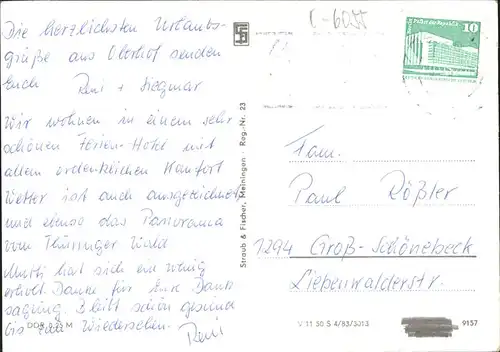 Die herzlichsten Urlaubs-
grüße aus Oberhof senden
Euch Reni + Siegmar
Wir wohnen in einem sehr
schönen Ferien-Hotel mit
allem erdenklichen Komfort
Wetter ist auch ausgezeichnet
und ebenso das Panorama
vom Thüringer Wald
Mutti hat sich ein wenig
erholt. Danke für Eure Dank-
sagung. Bleibt schön gesund
bis zum Wiedersehen.
Reni
DDR 0,25 M
Straub & Fischer, Meiningen · Reg.-Nr. 23
Palast der Republik
10
Fam.
Paul Rößler
1294 Groß-Schönebeck
Liebenwalderstr.
V 11 50 S 4/83/3013
9157